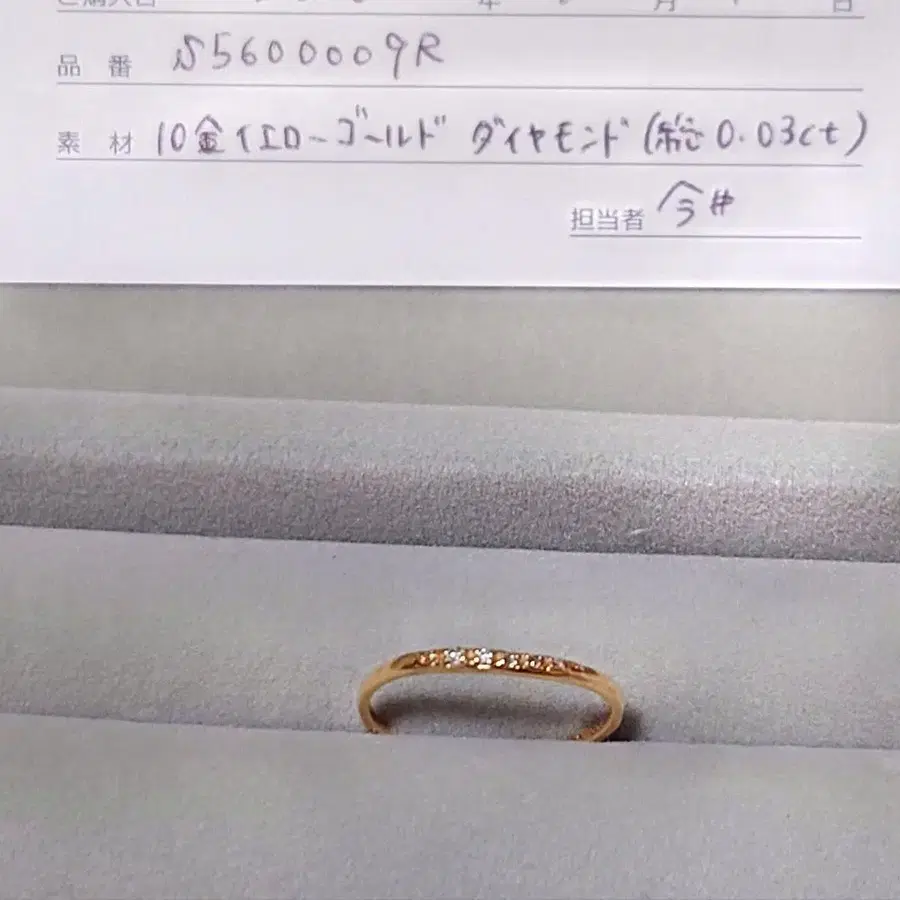 品番 S5600009R
素材 10金イエローゴールド ダイヤモンド(総0.03ct)
担当者 今井